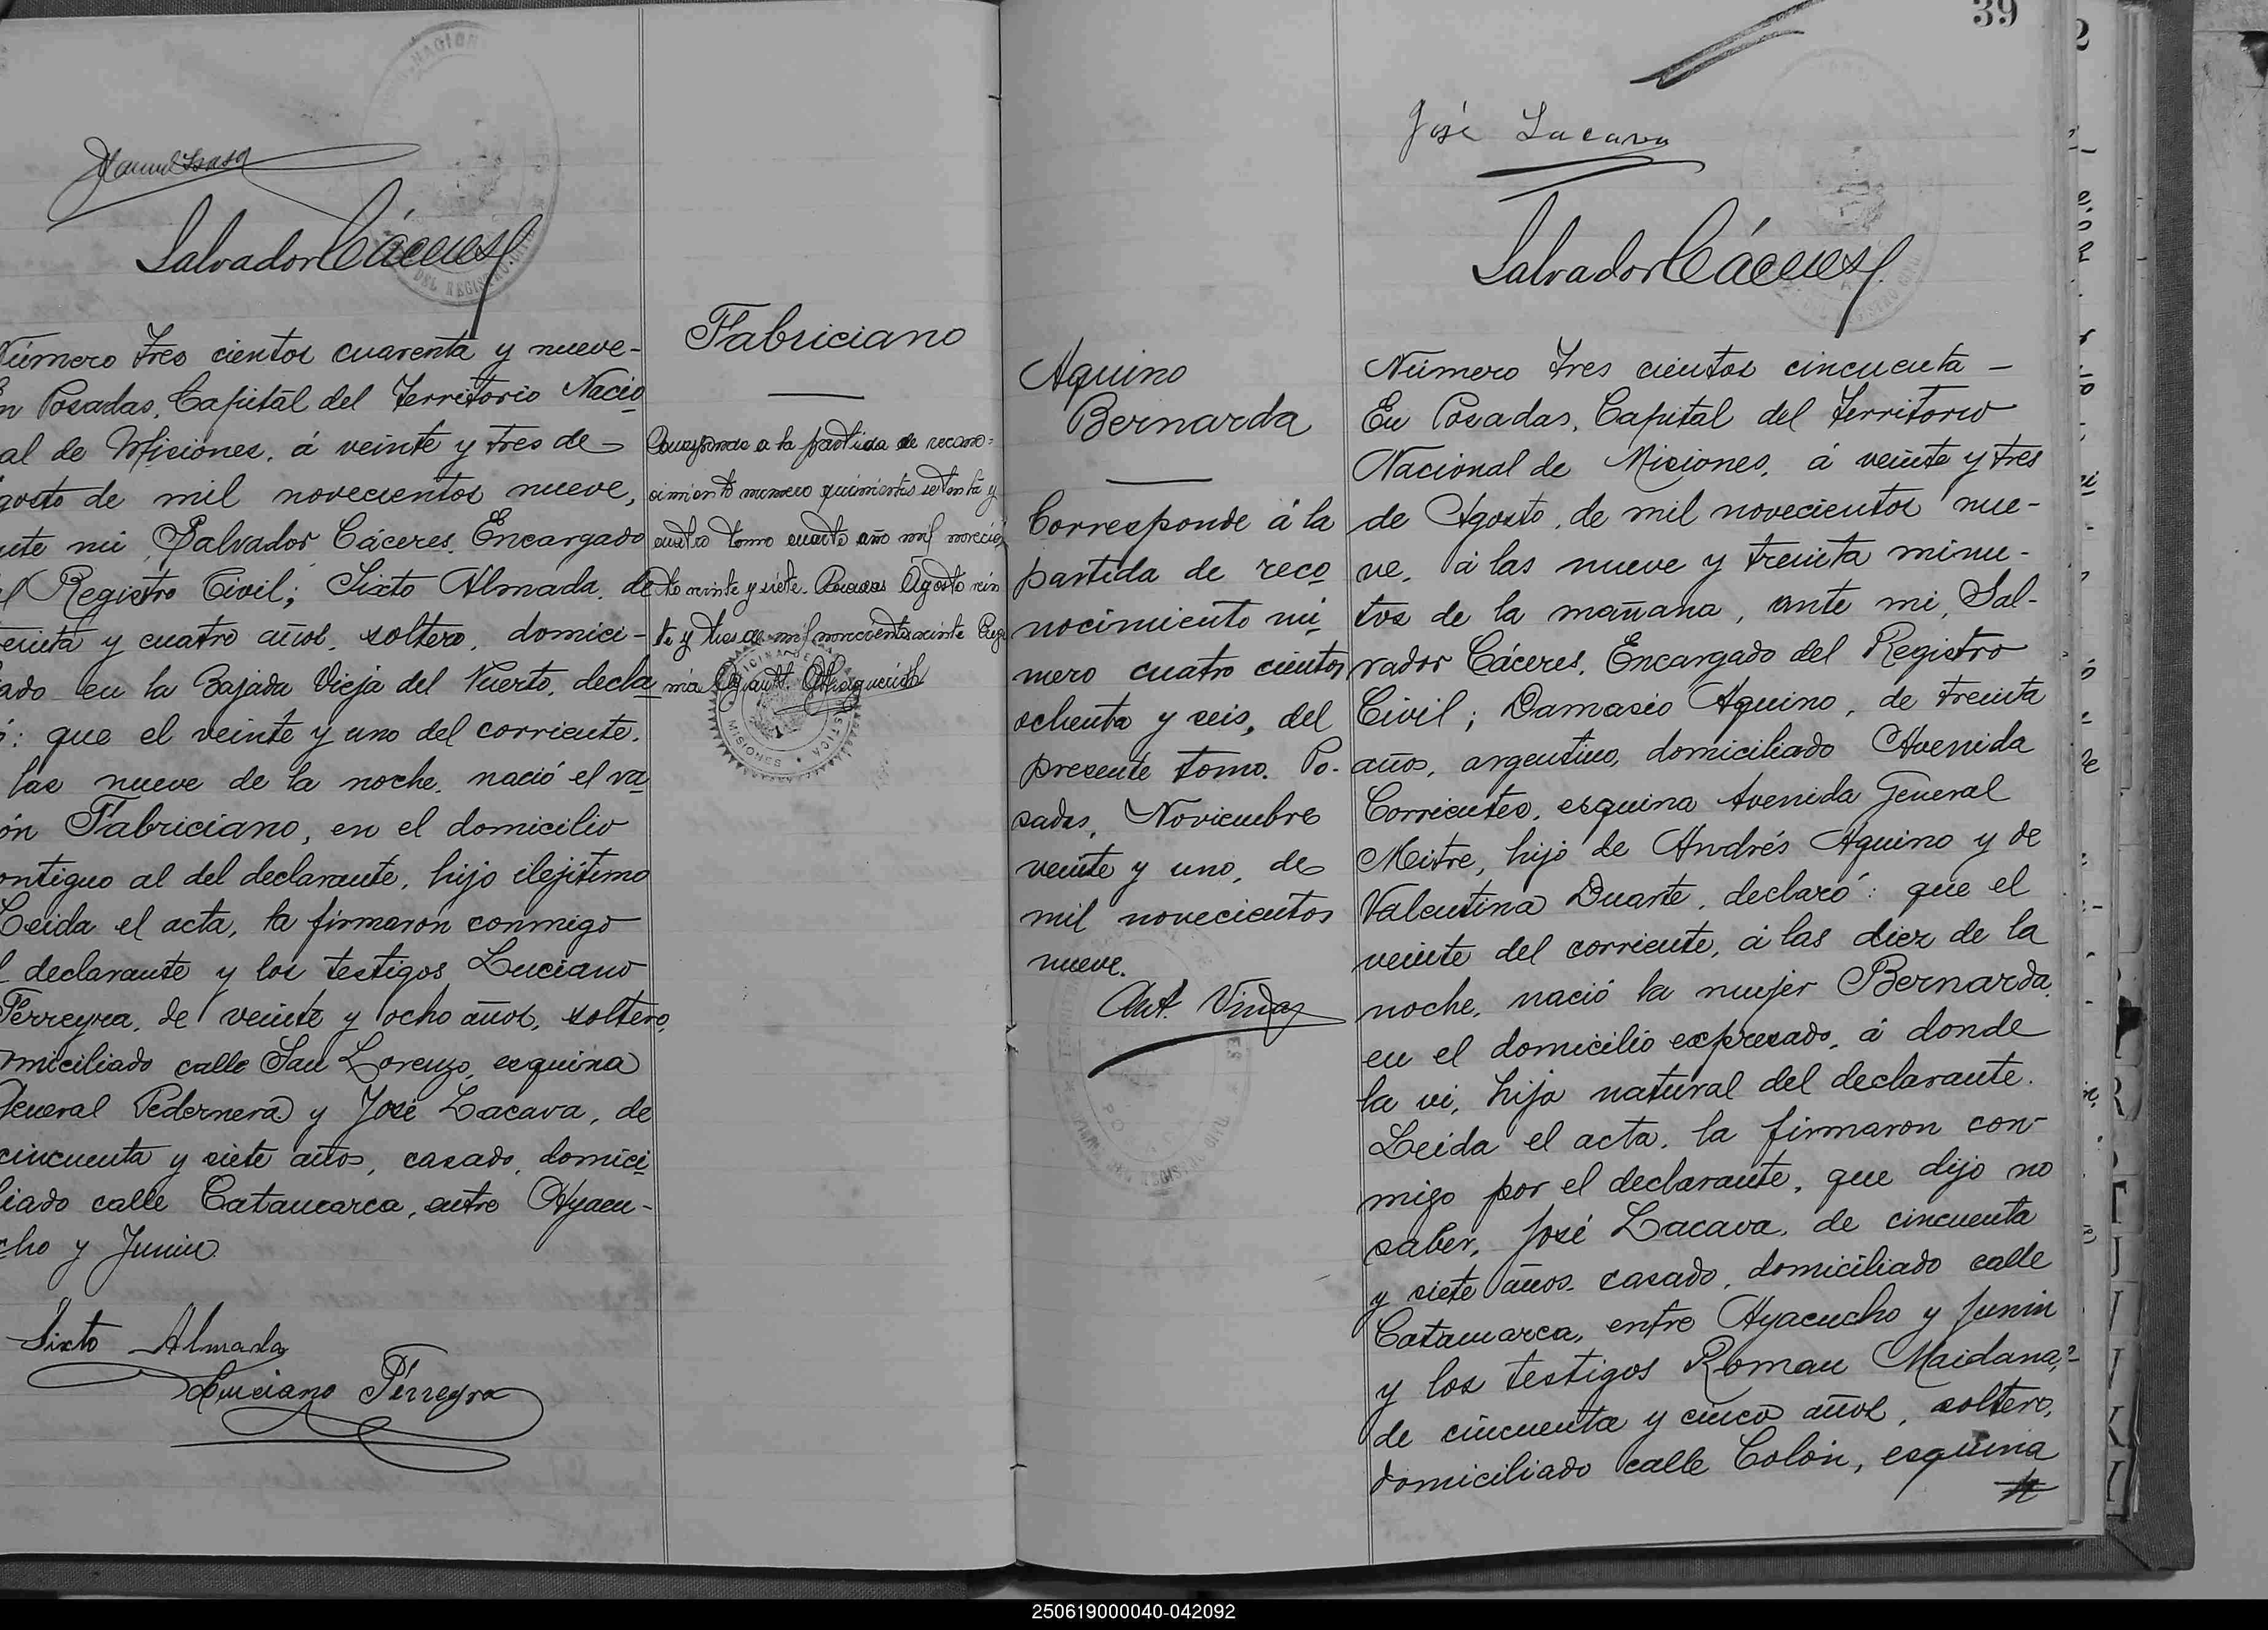 Salvador Cáceres
Número tres cientos cuarenta y nueve-
En Posadas, Capital del Territorio Nacio
al de Misiones, á veinte y tres de
gosto de mil novecientos nueve,
nte mi, Salvador Cáceres, Encargado
el Registro Civil; Sixto Almada, de
einta y cuatro años, soltero, domici-
ado en la Bajada Vieja del Puerto, decla
ó: que el veinte y uno del corriente,
las nueve de la noche, nació el va
ón Fabriciano, en el domicilio
ontiguo al del declarante, hijo ilejítimo
Leida el acta, la firmaron conmigo
l declarante y los testigos Luciano
Ferreyra, de veinte y ocho años, soltero,
omiciliado calle San Lorenzo, esquina
General Pedernera y José Lacava, de
cincuenta y siete años, casado, domici
liado calle Catamarca, entre Ayacu-
cho y Junin.
Sixto Almada
Luciano Ferreyra
Fabriciano
Corresponde a la partida de recono=
cimiento numero quinientos setenta y
cuatro tomo cuarto año mil novecien
to veinte y siete. Posadas Agosto vein
te y tres de mil novecientos veinte
OFICINA DE ESTADISTICA
MISIONES
39
José Lacava
Salvador Cáceres
Aquino
Bernarda
Corresponde á la
partida de reco
nocimiento nú
mero cuatro cientos
ochenta y seis, del
presente tomo. Po-
sadas, Noviembre
veinte y uno, de
mil novecientos
nueve.
Ant.
Número tres cientos cincuenta —
En Posadas, Capital del Territorio
Nacional de Misiones, á veinte y tres
de Agosto, de mil novecientos nue-
ve, á las nueve y treinta minu-
tos de la mañana, ante mi, Sal-
vador Cáceres, Encargado del Registro
Civil; Damasio Aquino, de treinta
años, argentino, domiciliado Avenida
Corrientes, esquina Avenida General
Mitre, hijo de Andrés Aquino y de
Valentina Duarte, declaró: que el
veinte del corriente, á las diez de la
noche, nació la mujer Bernarda,
en el domicilio expresado, á donde
la vi, hija natural del declarante.
Leida el acta, la firmaron con-
migo por el declarante, que dijo no
saber, José Lacava, de cincuenta
y siete años, casado, domiciliado calle
Catamarca, entre Ayacucho y Junin
y los testigos Roman Maidana,
de cincuenta y cinco años, soltero,
domiciliado calle Colón, esquina
250619000040-042092